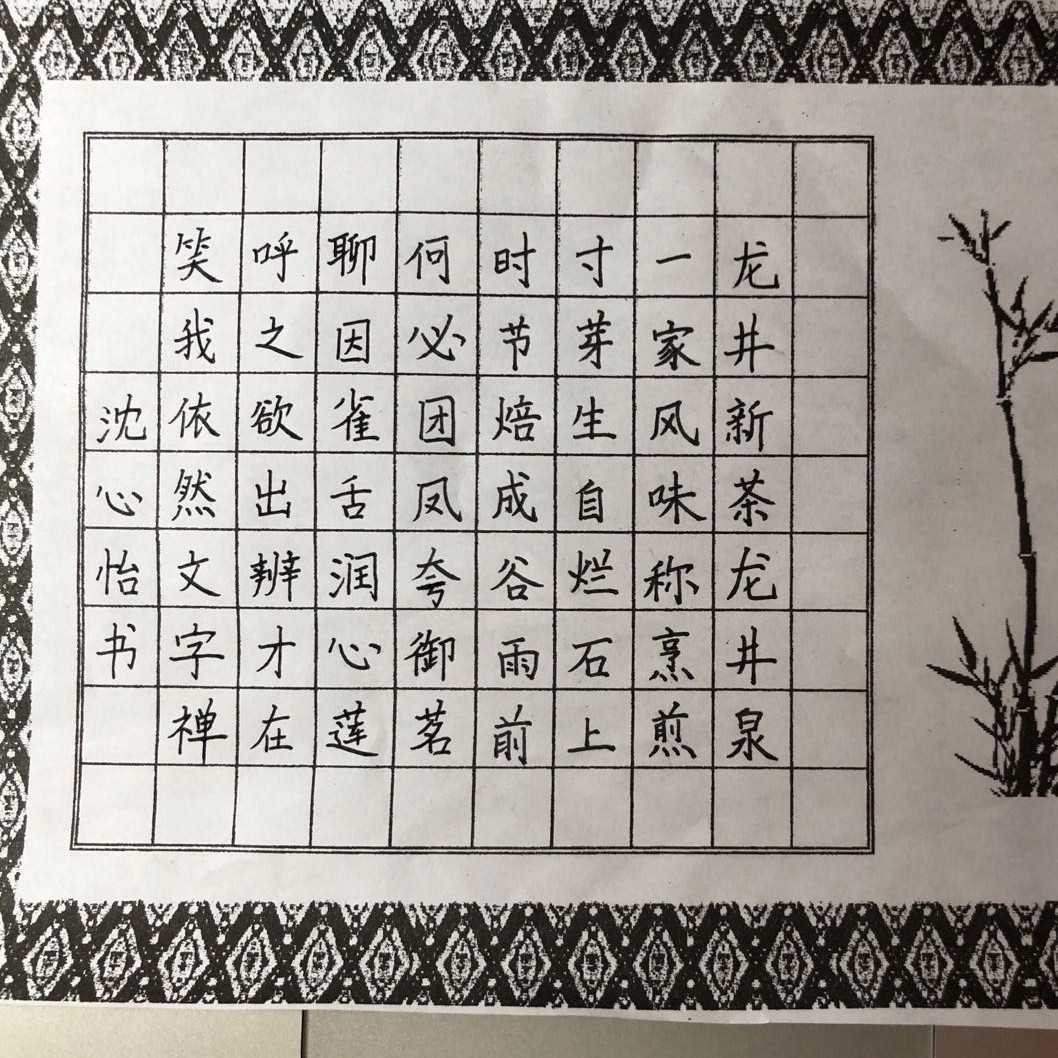 龙井新茶龙井泉
一家风味称烹煎
寸芽生自烂石上
时节焙成谷雨前
何必团凤夸御茗
聊因雀舌润心莲
呼之欲出辨才在
笑我依然文字禅
沈心怡书